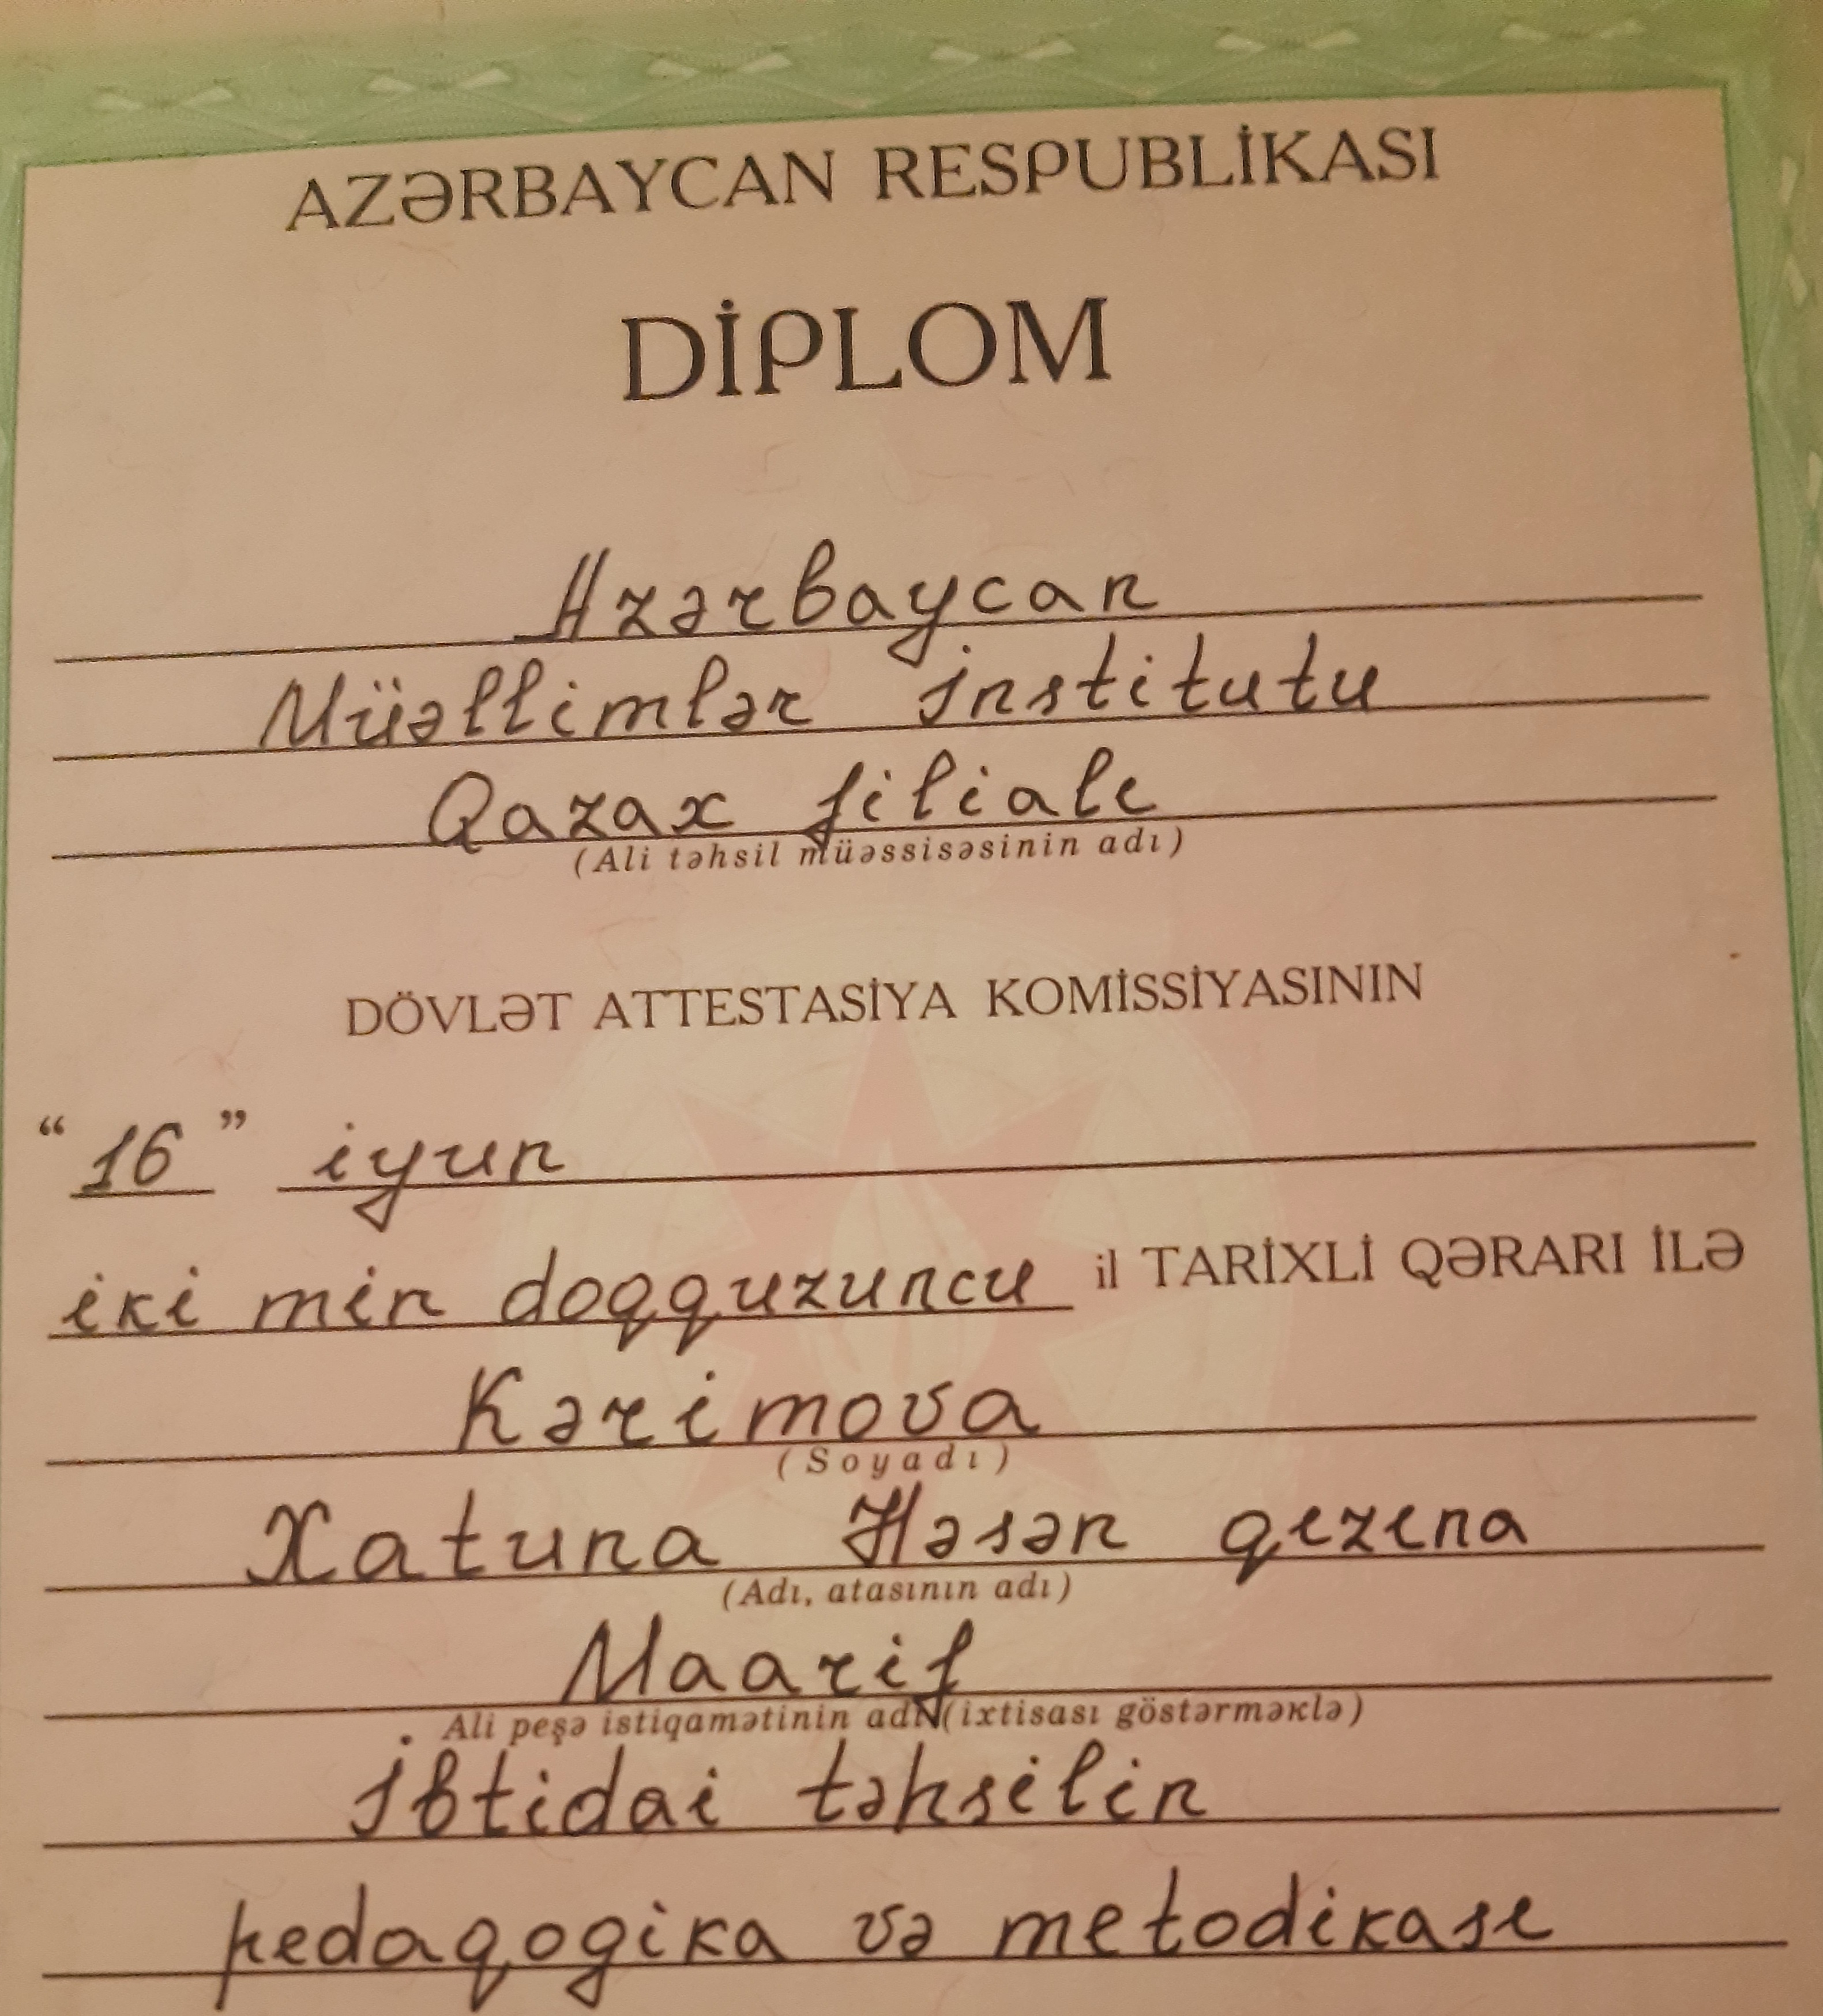 AZƏRBAYCAN RESPUBLİKASI
DİPLOM
Azərbaycan
Müəllimlər İnstitutu
Qazax filialı
(Ali təhsil müəssisəsinin adı)
DÖVLƏT ATTESTASİYA KOMİSSİYASININ
“ 16 ” iyun
iki min doqquzuncu il TARİXLİ QƏRARI İLƏ
Kərimova
(Soyadı)
Xatuna Həsən qızına
(Adı, atasının adı)
Maarif
Ali peşə istiqamətinin adı (ixtisası göstərməklə)
İbtidai təhsilin
pedaqogika və metodikası